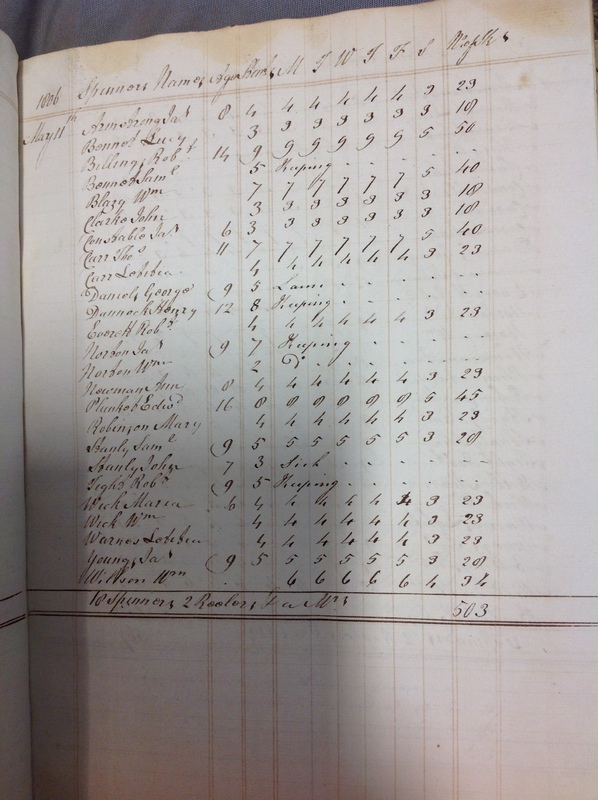 1806 Spinners Names Ages Stint M T W T F S Wopsks
May 11th Armstrong Jas 8 4 4 4 4 4 4 3 23
Bennet Lucy 3 3 3 3 3 3 3 18
Billing Robt 14 9 9 9 9 9 9 5 50
Bennet Saml 5 Keeping
Blazy Wm 7 7 7 7 7 7 5 40
Clarke John 3 3 3 3 3 3 3 18
Constable Jas 6 3 3 3 3 3 3 3 18
Carr Thos 11 7 7 7 7 7 7 5 40
Carr Letitia 4 4 4 4 4 4 3 23
Daniels George 9 5 Lame
Dunnock Henry 12 8 Keeping
Everett Robt 4 4 4 4 4 4 3 23
Norton Jas 9 7 Keeping
Norton Wm 2 Do
Newman Ann 8 4 4 4 4 4 4 3 23
Plunket Edwd 16 8 8 8 8 8 8 5 45
Robinson Mary 4 4 4 4 4 4 3 23
Stanly Saml 9 5 5 5 5 5 5 3 28
Stanly John 7 3 Sick
Tight Robt 9 5 Keeping
Wick Maria 6 4 4 4 4 4 4 3 23
Wick Wm 4 4 4 4 4 4 3 23
Warnes Letitia 4 4 4 4 4 4 3 23
Young Jas 9 5 5 5 5 5 5 3 28
Willson Wm 6 6 6 6 6 4 34
18 Spinners 2 Reelers 503